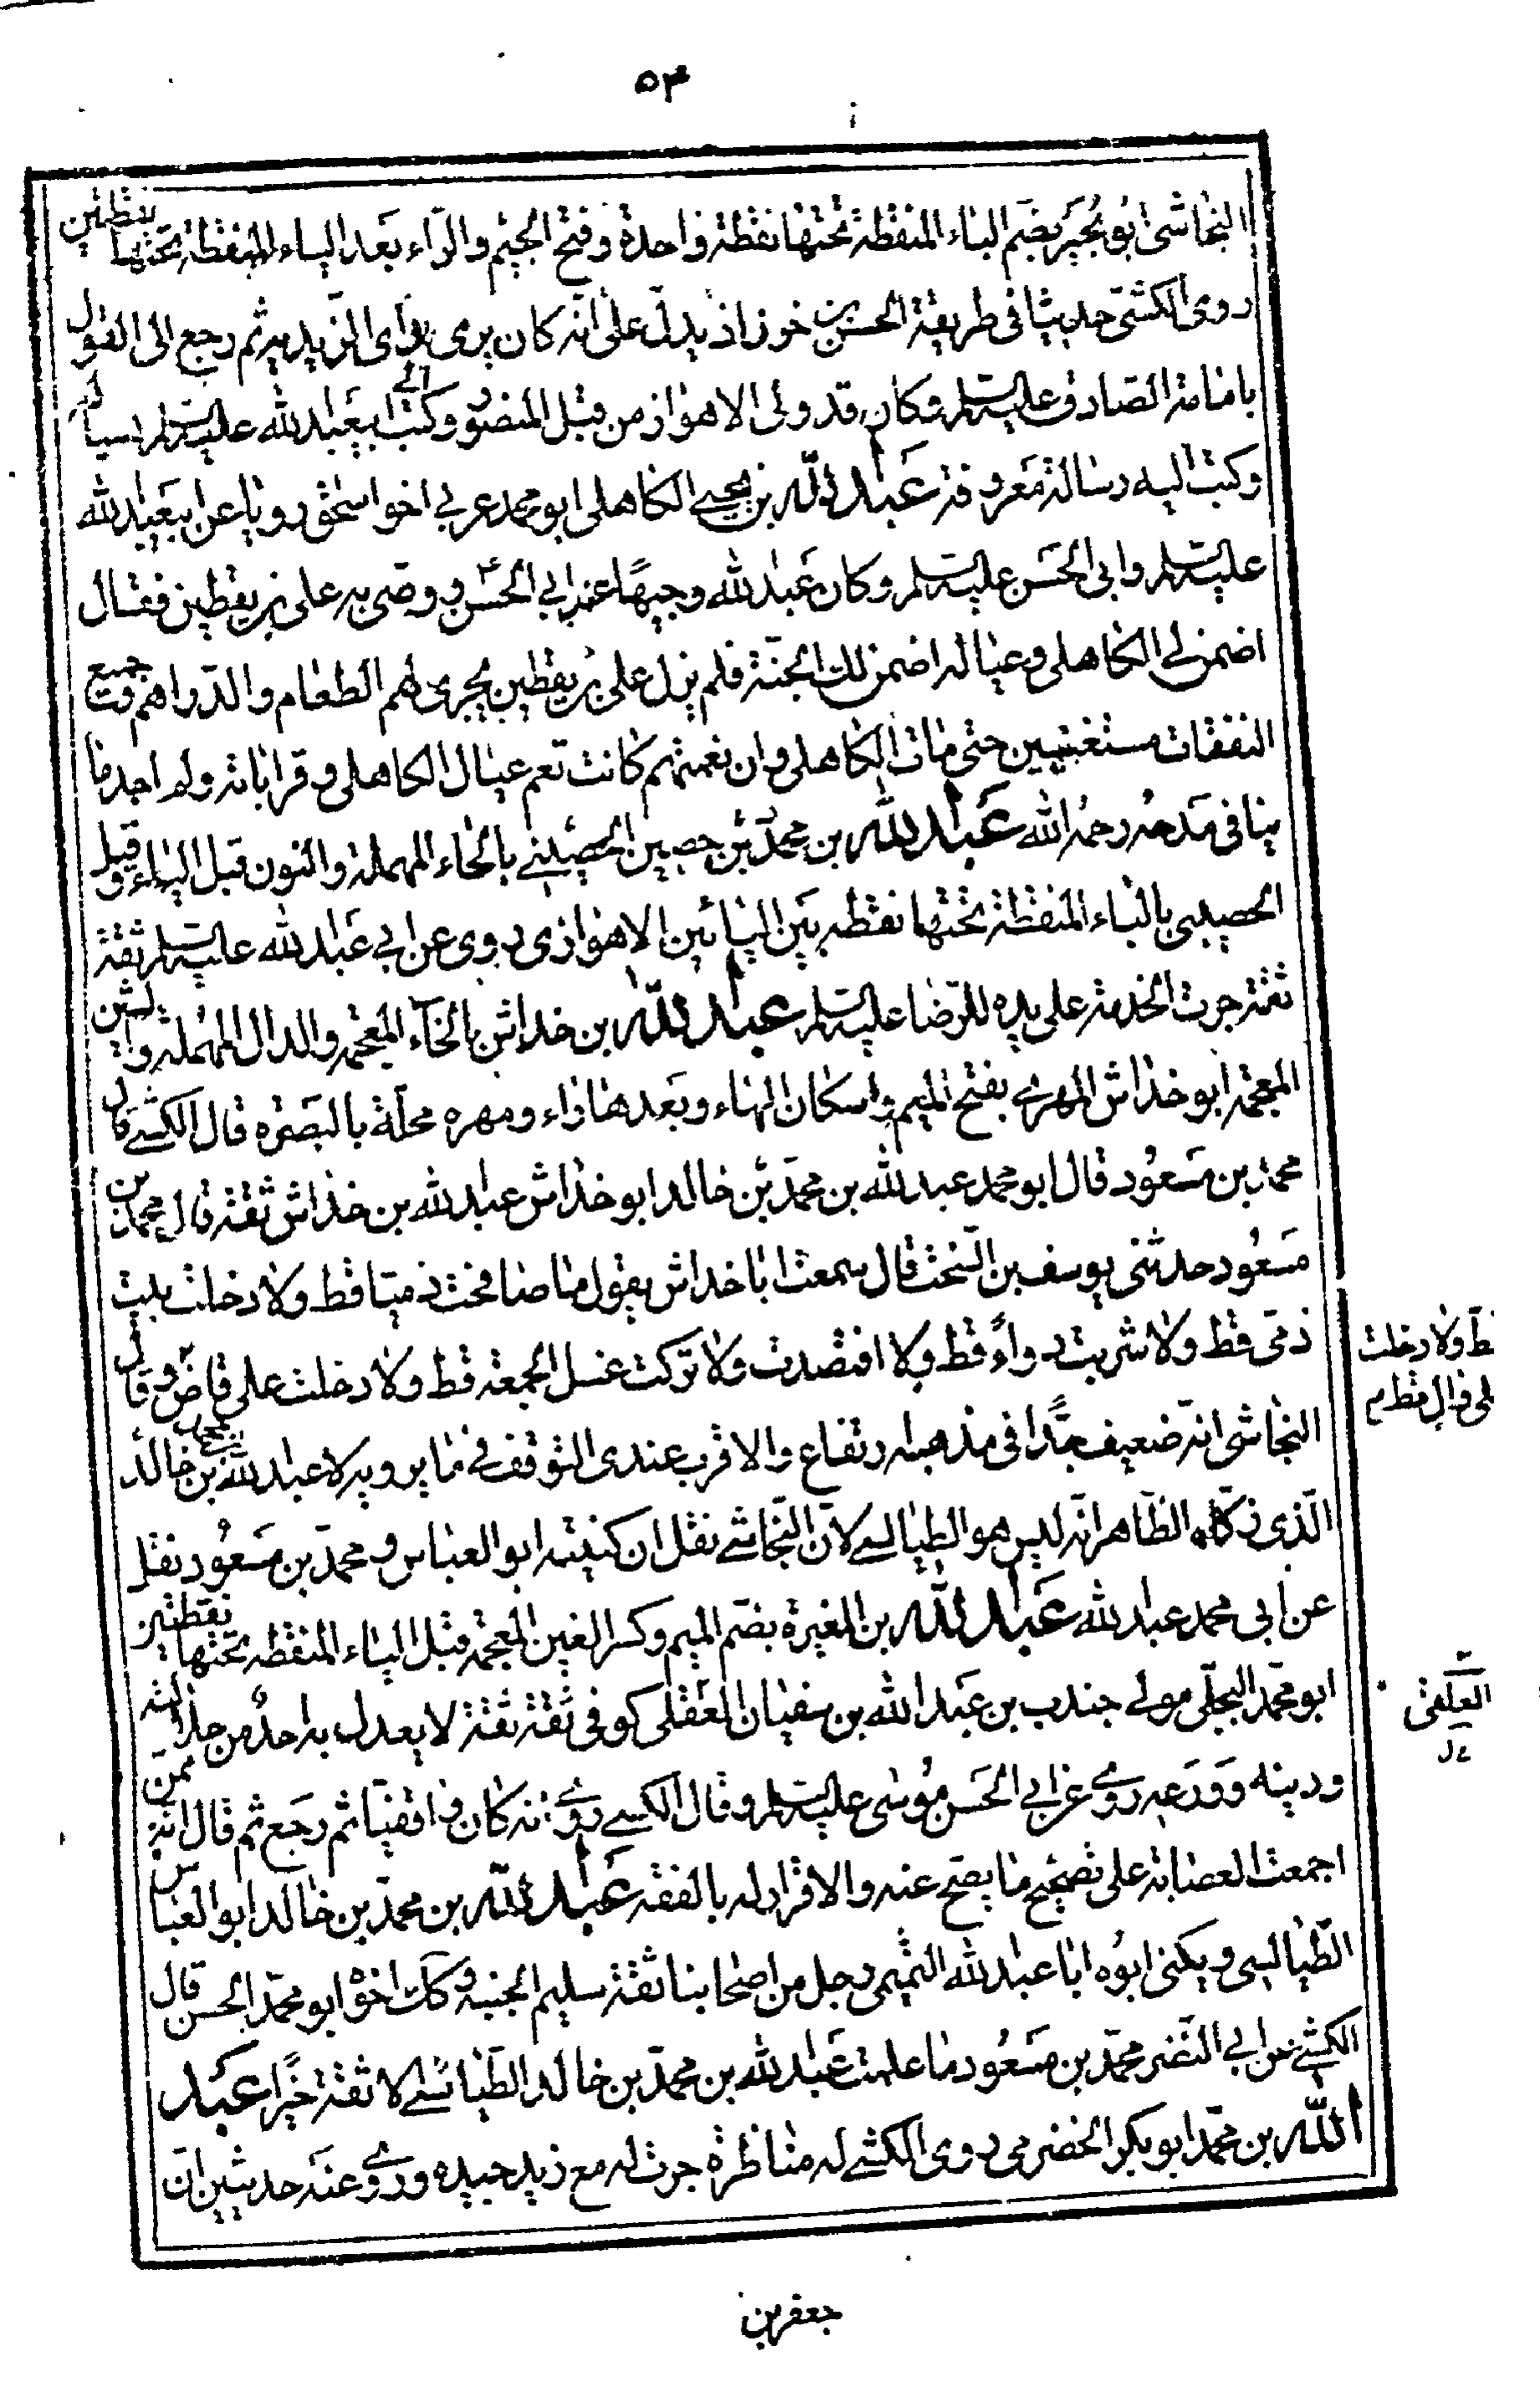 ٥٣
النجاشى ابو بجير بضم الباء المنقطة تحتها نقطة واحدة وفتح الجيم والراء بعد الياء المنقطة تحتها نقطتين
روى الكشى حديثا فى طريقة الحسن بن خوزاذ يدل على انه كان يرى راى الزيدية ثم رجع الى القول
بامامة الصادق عليه السلم وكان قد ولى الاهواز من قبل المنصور وكتب الى ابيعبد الله عليه السلم
وكتب اليه رسالة معروفة عبد الله بن يحيى الكاهلى ابو محمد عربى اخو اسحق رويا عن ابيعبد الله
عليه السلم وابى الحسن عليه السلم وكان عبد الله وجيها عند ابى الحسن ع ووصى به على بن يقطين فقال
اضمن لى الكاهلى وعياله اضمن لك الجنة فلم يزل على بن يقطين يجرى لهم الطعام والدراهم وجميع
النفقات مستغنيين حتى مات الكاهلى وان نعمتهم كانت تعم عيال الكاهلى وقراباته ولم اجد ما
ينافى مدحه رحمه الله عبد الله بن محمد بن حصين الحصينى بالحاء المهملة والنون قبل الياء وقيل
الحصيبى بالباء المنقطة تحتها نقطة بين اليائين الاهوازى روى عن ابى عبد الله عليه السلم ثقة
ثقة جرت الخدمة على يده للرضا عليه السلم عبد الله بن خداش بالخاء المعجمة والدال المهملة والشين
المعجمة ابو خداش المهرى بفتح الميم واسكان الهاء وبعدها راء ومهره محلة بالبصره قال الكشى قال
محمد بن مسعود قال ابو محمد عبد الله بن محمد بن خالد ابو خداش عبد الله بن خداش ثقة قال محمد بن
مسعود حدثنى يوسف بن السخت قال سمعت ابا خداش يقول ما صافحت ذميا قط ولا دخلت بيت
ذمى قط ولا شربت دواءً قط ولا افتصدت ولا تركت غسل الجمعة قط ولا دخلت على قاض وقال
قط ولا دخلت
على وال قط م
النجاشى انه ضعيف جدًا فى مذهبه ارتفاع والاقرب عندى التوقف فى ما يرويه لا عبد الله بن محمد بن خالد
الذى زكاه الظاهر انه ليس هو الطيالسى لان النجاشى نقل ان كنيته ابو العباس ومحمد بن مسعود نقل
عن ابى محمد عبد الله عبد الله بن المغيرة بضم الميم وكسر الغين المعجمة قبل الياء المنقطة تحتها نقطتين
ابو محمد البجلى مولى جندب بن عبد الله بن سفيان العقلى كوفى ثقة ثقة لا يعدل به احد من جلالته
العلقى
ودينه وورعه روى عن ابى الحسن موسى عليه السلم وقال الكشى روى انه كان واقفيا ثم رجع ثم قال انه ممن
اجمعت العصابة على تصحيح ما يصح عنه والاقرار له بالفقه عبد الله بن محمد بن خالد ابو العباس
الطيالسى ويكنى ابوه ابا عبد الله التميمى رجل من اصحابنا ثقة سليم الجنبه وكك اخوه ابو محمد الحسن قال
الكشى عن ابى النضر محمد بن مسعود ما علمت عبد الله بن محمد بن خالد الطيالسى الا ثقة خيرا عبد
الله بن محمد ابو بكر الحضرمى روى الكشى له مناظرة جرت له مع زيد جيده وروى عنه حديثين ان
جعفر بن